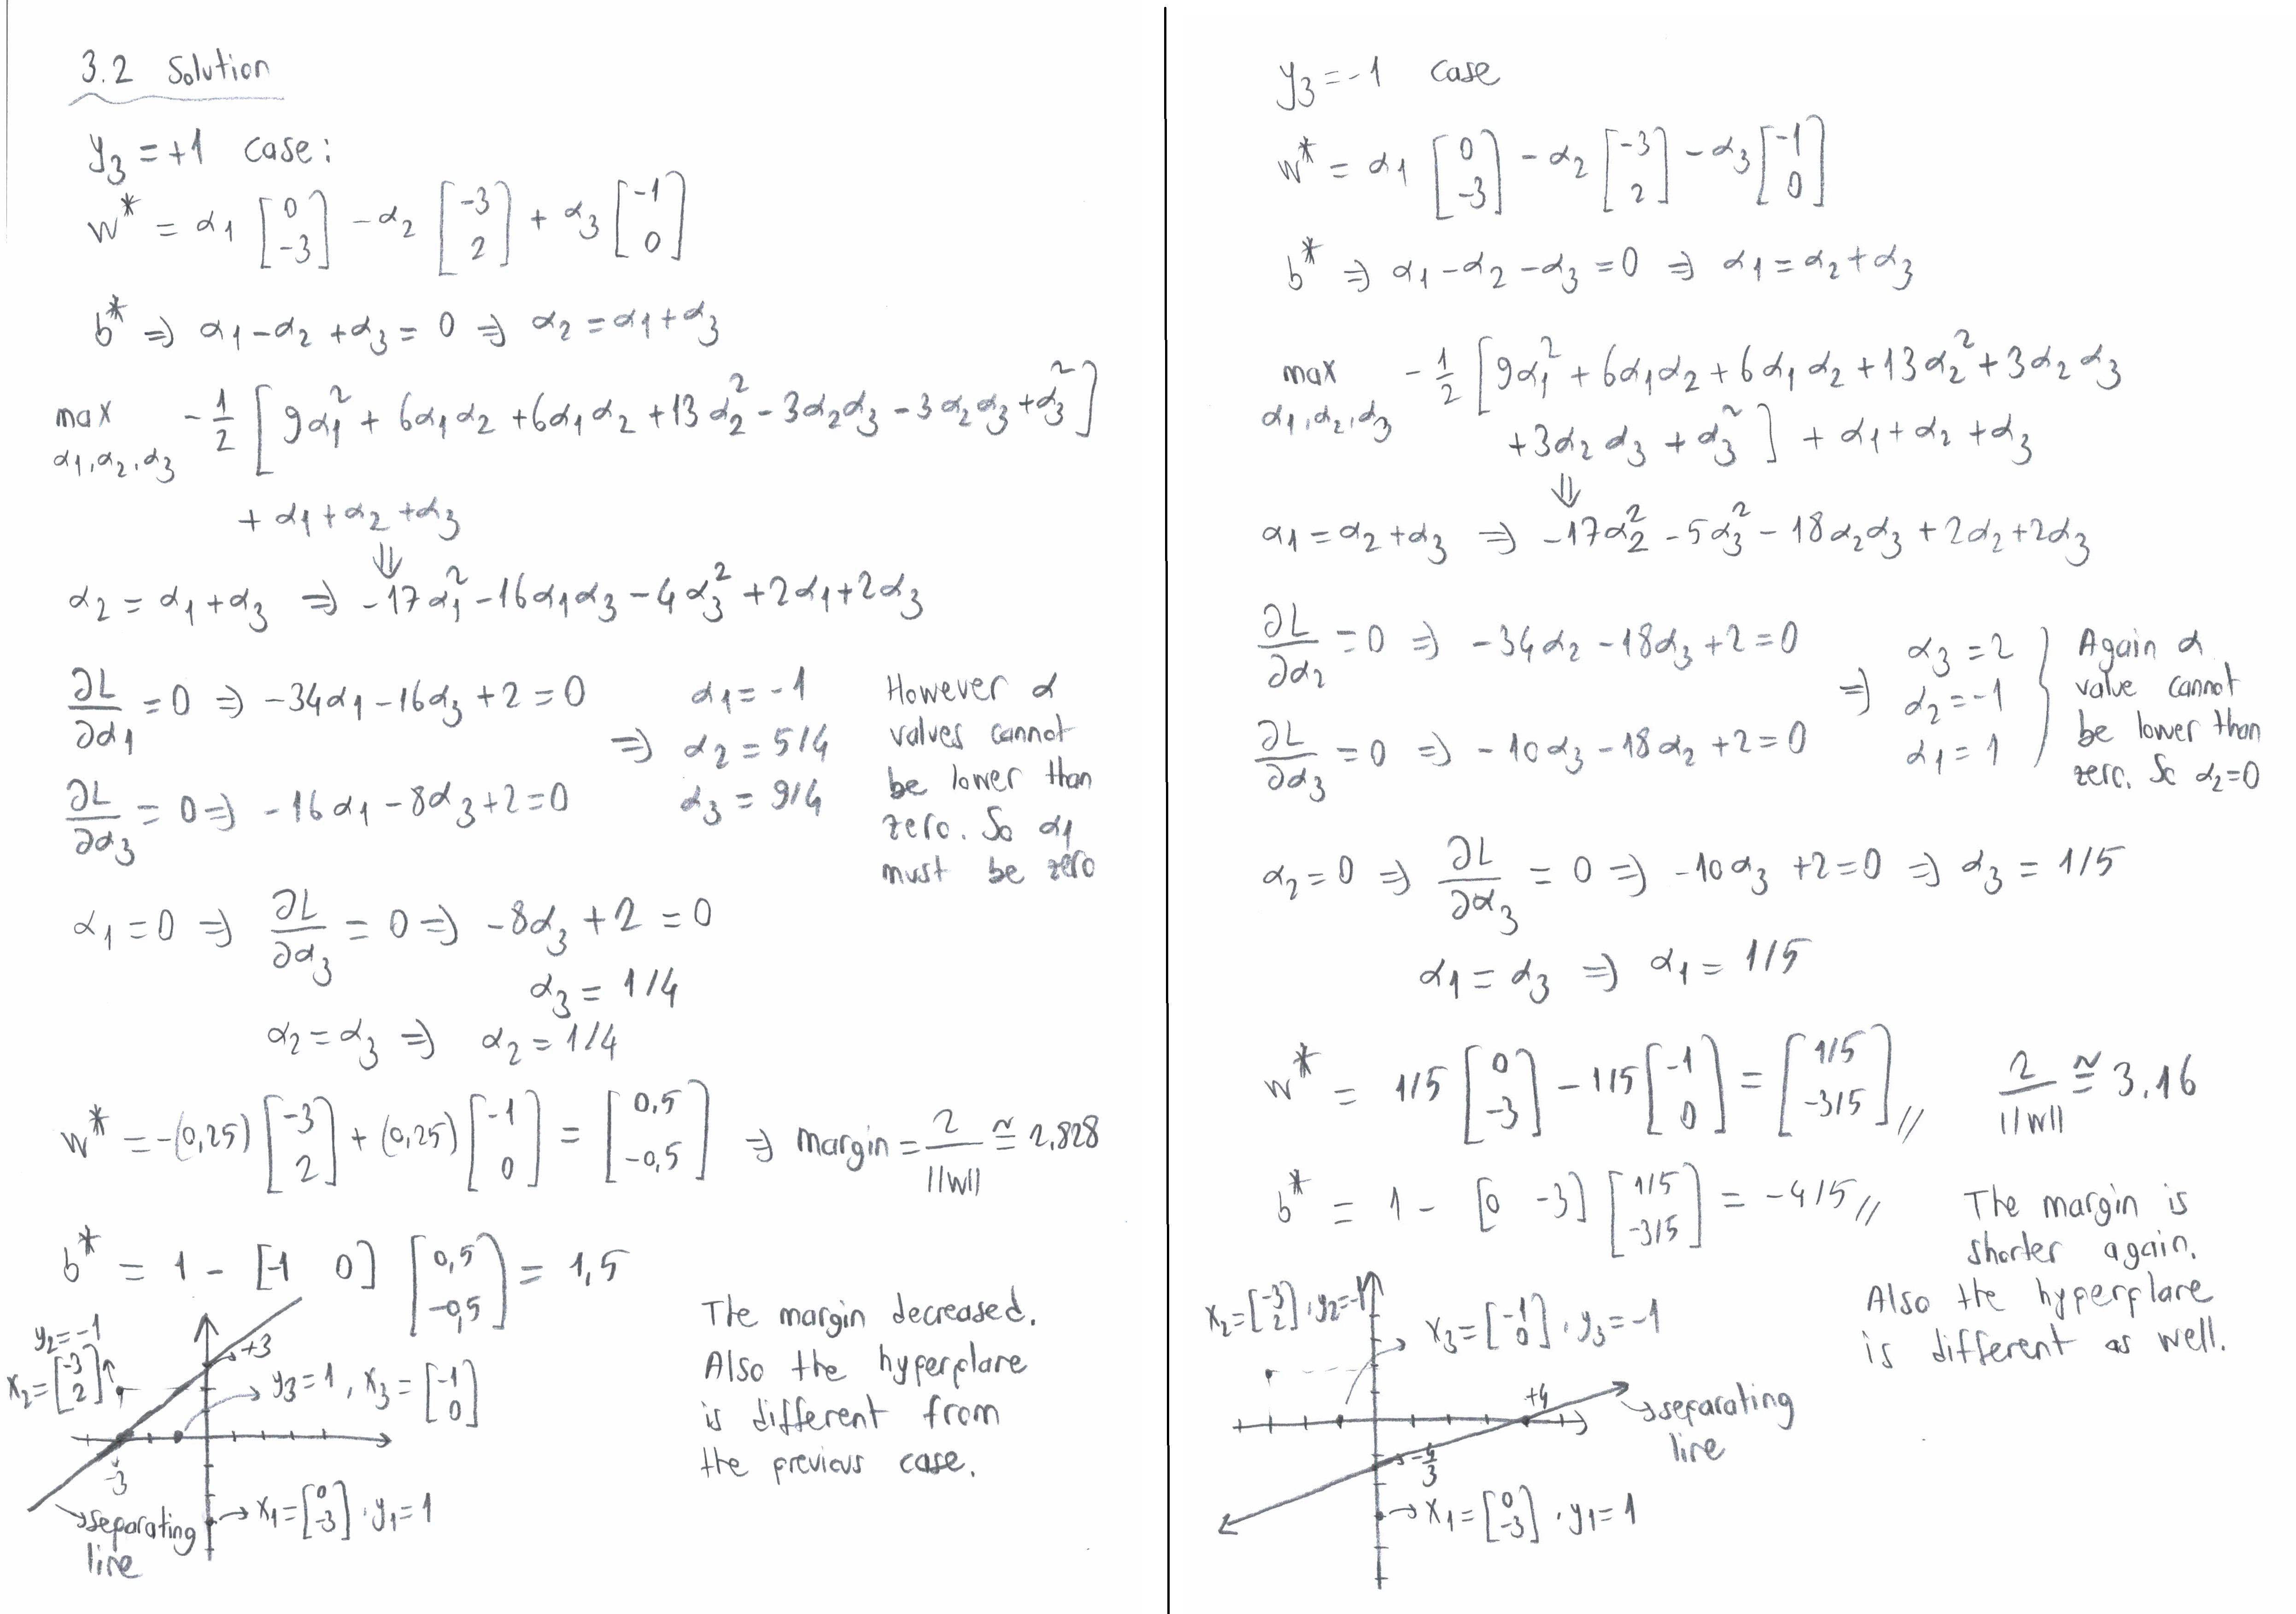 3.2 Solution
y₃ = +1 case:
w* = α₁ [0 -3] - α₂ [-3 2] + α₃ [-1 0]
b* ⇒ α₁ - α₂ + α₃ = 0 ⇒ α₂ = α₁ + α₃
max α₁,α₂,α₃ -1/2 [9α₁² + 6α₁α₂ + 6α₁α₂ + 13α₂² - 3α₂α₃ - 3α₂α₃ + α₃²]
+ α₁ + α₂ + α₃
⇓
α₂ = α₁ + α₃ ⇒ -17α₁² - 16α₁α₃ - 4α₃² + 2α₁ + 2α₃
∂L/∂α₁ = 0 ⇒ -34α₁ - 16α₃ + 2 = 0
∂L/∂α₃ = 0 ⇒ -16α₁ - 8α₃ + 2 = 0
⇒
α₁ = -1
α₂ = 5/4
α₃ = 9/4
However α
values cannot
be lower than
zero. So α₁
must be zero
α₁ = 0 ⇒ ∂L/∂α₃ = 0 ⇒ -8α₃ + 2 = 0
α₃ = 1/4
α₂ = α₃ ⇒ α₂ = 1/4
w* = -(0,25) [-3 2] + (0,25) [-1 0] = [0,5 -0,5] ⇒ margin = 2/||w|| ≅ 2,828
b* = 1 - [-1 0] [0,5 -0,5] = 1,5
The margin decreased.
Also the hyperplane
is different from
the previous case.
y₂ = -1
x₂ = [-3 2]
+3
→ y₃ = 1, x₃ = [-1 0]
-3
→ separating
line
→ x₁ = [0 -3] . y₁ = 1
y₃ = -1 case
w* = α₁ [0 -3] - α₂ [-3 2] - α₃ [-1 0]
b* ⇒ α₁ - α₂ - α₃ = 0 ⇒ α₁ = α₂ + α₃
max α₁,α₂,α₃ -1/2 [9α₁² + 6α₁α₂ + 6α₁α₂ + 13α₂² + 3α₂α₃
+ 3α₂α₃ + α₃²] + α₁ + α₂ + α₃
⇓
α₁ = α₂ + α₃ ⇒ -17α₂² - 5α₃² - 18α₂α₃ + 2α₂ + 2α₃
∂L/∂α₂ = 0 ⇒ -34α₂ - 18α₃ + 2 = 0
∂L/∂α₃ = 0 ⇒ -10α₃ - 18α₂ + 2 = 0
⇒
α₃ = 2
α₂ = -1
α₁ = 1
Again α
value cannot
be lower than
zero. So α₂=0
α₂ = 0 ⇒ ∂L/∂α₃ = 0 ⇒ -10α₃ + 2 = 0 ⇒ α₃ = 1/5
α₁ = α₃ ⇒ α₁ = 1/5
w* = 1/5 [0 -3] - 1/5 [-1 0] = [1/5 -3/5] // 2/||w|| ≅ 3.16
b* = 1 - [0 -3] [1/5 -3/5] = -4/5 //
The margin is
shorter again.
Also the hyperplane
is different as well.
x₂ = [-3 2] . y₂ = -1
→ x₃ = [-1 0] . y₃ = -1
+4
→ separating
line
-4/3
→ x₁ = [0 -3] . y₁ = 1